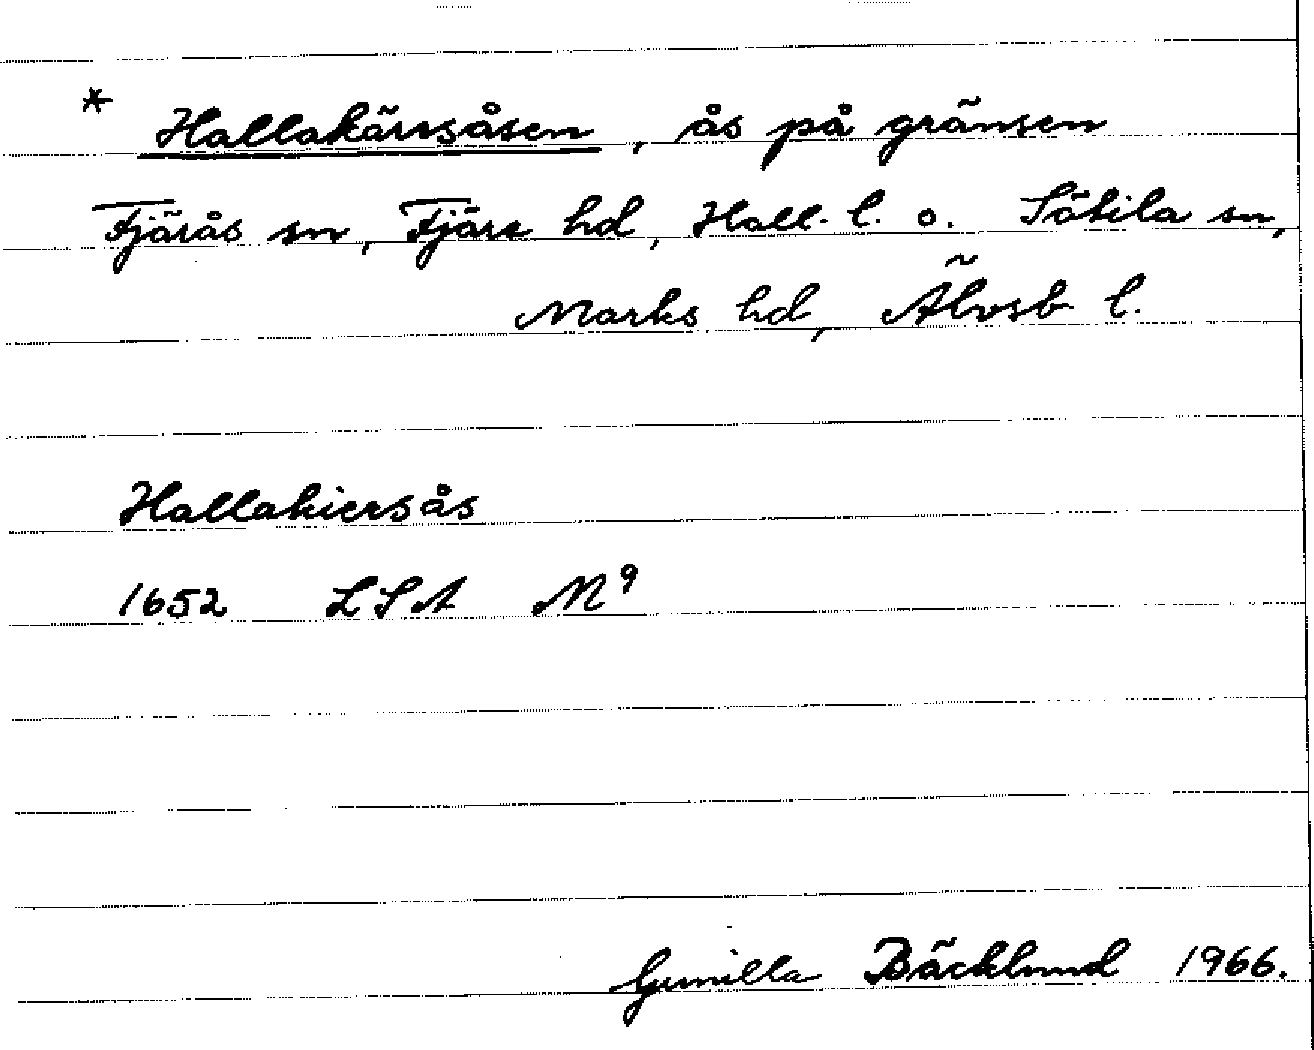 * Hallakärrsåsen, ås på gränsen
Fjärås sn, Fjäre hd, Hall. l. o. Sätila sn,
Marks hd, Älvsb l.
Hallakiersås
1652 LSA M⁹
Gunilla Bäcklund 1966.